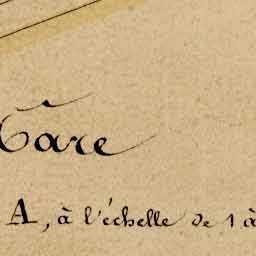 Care
A, à l'échelle de 1 à